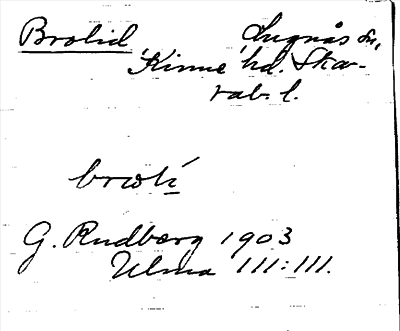 Brolid Lugnås sn,
Kinne hd. Ska-
rab. l.
brωlí
G. Rudberg 1903
Ulma 111:111.